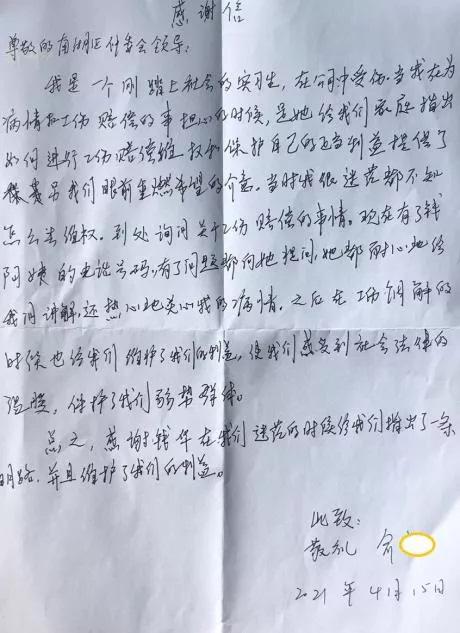 感谢信
尊敬的南湖区仲裁会领导：
我是一个刚踏上社会的实习生，在公司中受伤。当我在为
病情和工伤赔偿的事担心的时候，是她给我们家庭指出
如何进行工伤赔偿维权和保护自己的正当利益提供了
另我们眼前重燃希望的介意。当时我很迷茫都不知
怎么去维权。到处询问关于工伤赔偿的事情。现在有了钱
阿姨的电话号码，有了问题都向她提问，她都耐心地给
我们讲解，还热心地关心我的病情。之后在工伤调解的
时候也给我们维护了我们的利益，使我们感受到社会法律的
温暖，保护了我们弱势群体。
总之，感谢钱华在我们迷茫的时候给我们指出了一条
明路，并且维护了我们的利益。
此致：
敬礼 俞
2021年4月15日